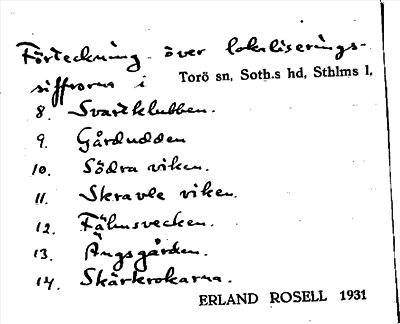 Förteckning över lokaliserings-
siffrorna i Torö sn, Soth.s hd, Sthlms l,
8. Svartklubben.
9. Gårdudden
10. Södra viken.
11. Skravle viken.
12. Fähusvecken.
13. Ängsgården.
14. Skärkrokarna.
ERLAND ROSELL 1931